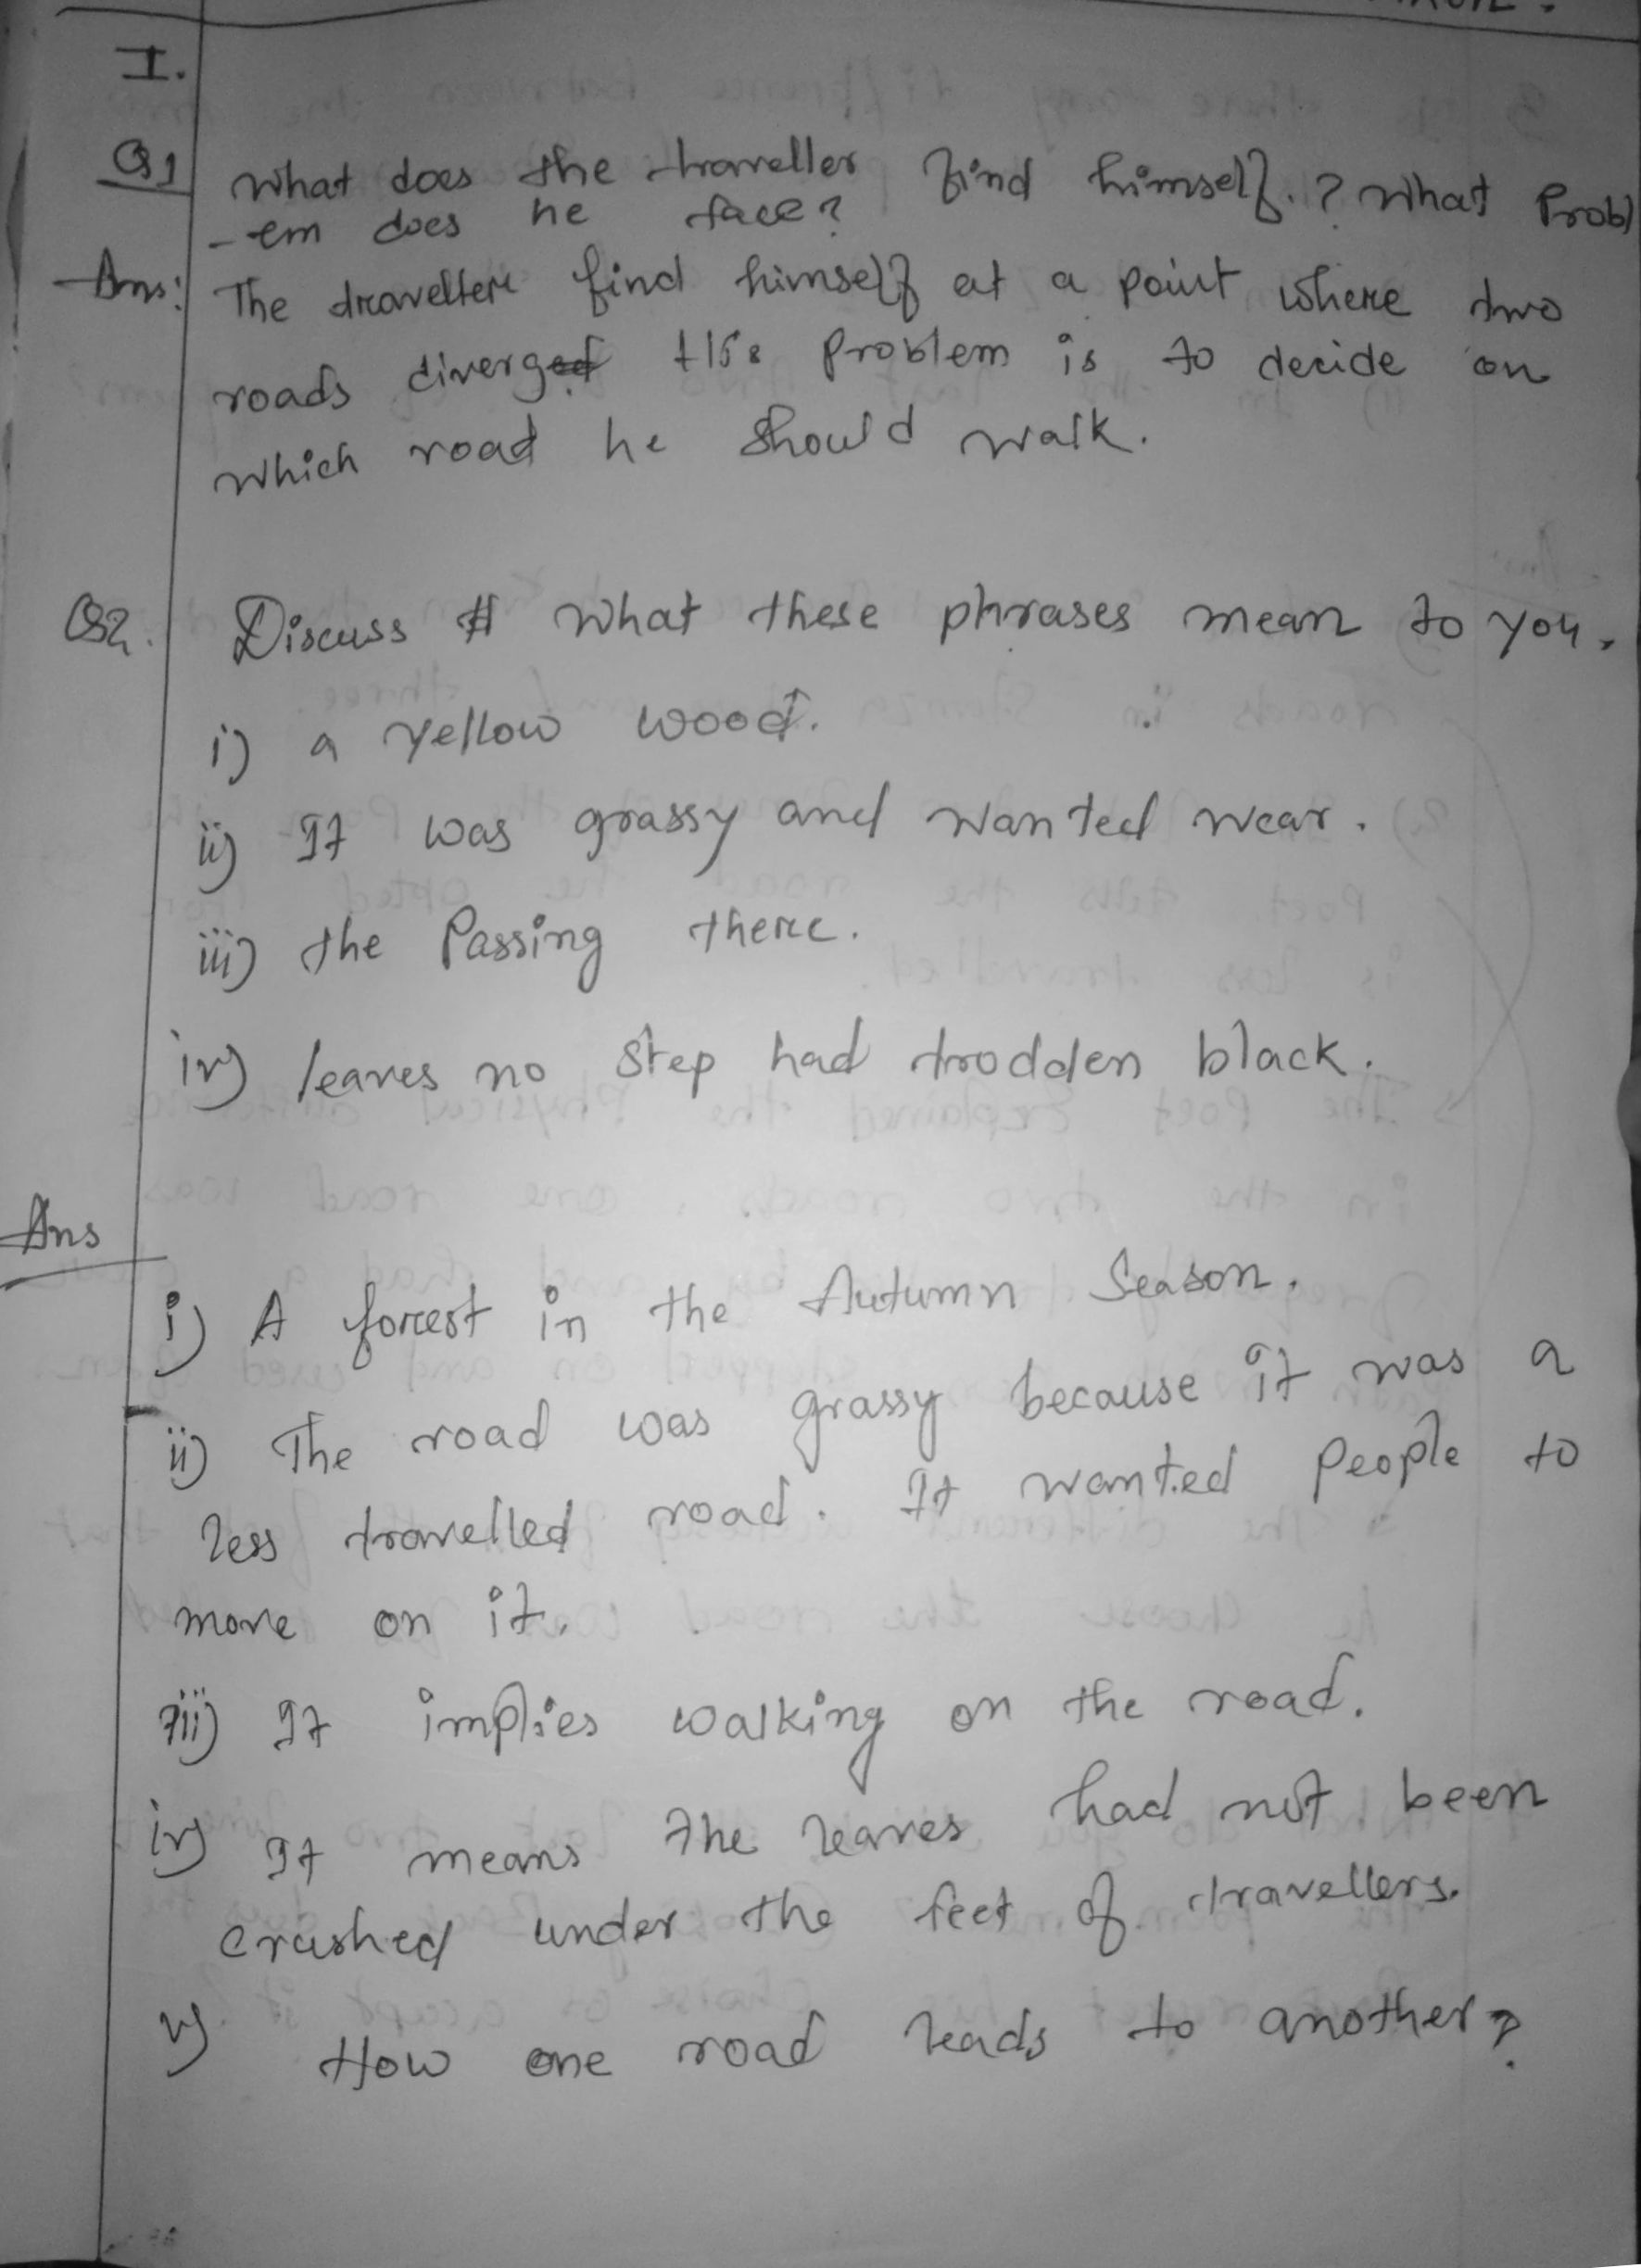 I.
Q1 What does the traveller find himself.? What Probl
-em does he face?
Ans: The traveller find himself at a point where two
roads diverged His problem is to decide on
which road he should walk.
Q2. Discuss what these phrases mean to you.
i) a yellow wood.
ii) It was grassy and wanted wear.
iii) the Passing there.
iv) leaves no step had trodden black.
Ans
i) A forest in the Autumn Season.
ii) The road was grassy because it was a
less travelled road. It wanted People to
move on it.
iii) It implies walking on the road.
iv) It means the leaves had not been
crushed under the feet of travellers.
v) How one road leads to another?